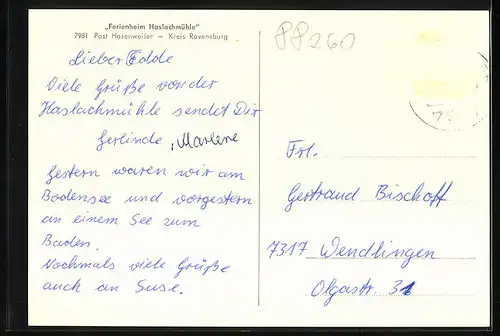 „Ferienheim Haslachmühle"
7981 Post Hasenweiler — Kreis Ravensburg
PP260
Lieber Edde
Viele Grüße von der
Haslachmühle sendet Dir
Gerlinde, Marlene
Gestern waren wir am
Bodensee und vorgestern
an einem See zum
Baden.
Nochmals viele Grüße
auch an Suse.
Frl.
Gertraud Bischoff
7317 Wendlingen
Olgastr. 31